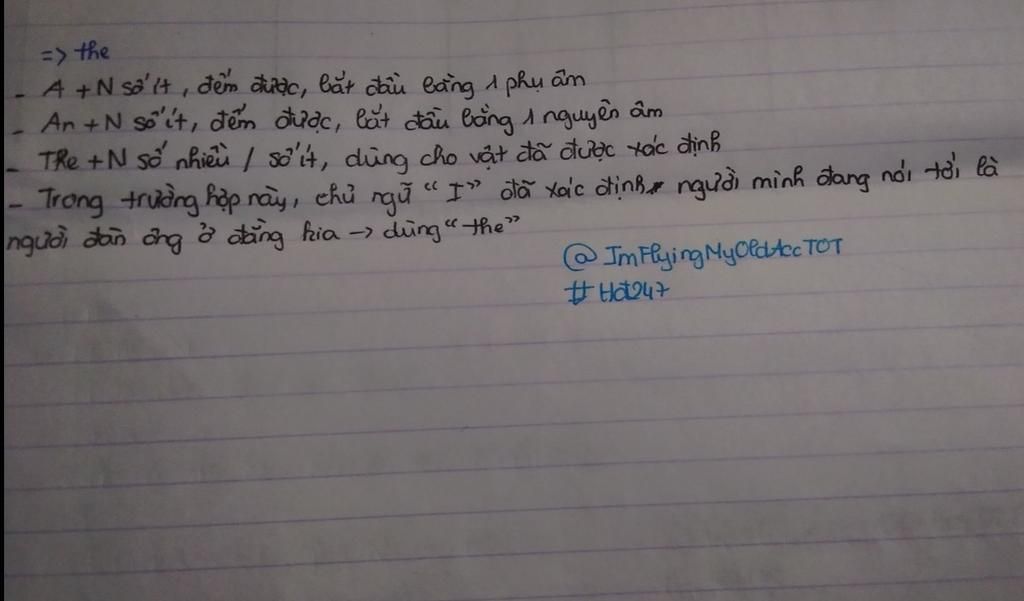 => the
- A + N số ít, đếm được, bắt đầu bằng 1 phụ âm
- An + N số ít, đếm được, bắt đầu bằng 1 nguyên âm
- The + N số nhiều / số ít, dùng cho vật đã được xác định
- Trong trường hợp này, chủ ngữ "I" đã xác định người mình đang nói tới là
người đàn ông ở đằng kia → dùng "the"
@ImFlyingMyOldAccTOT
#Hd247